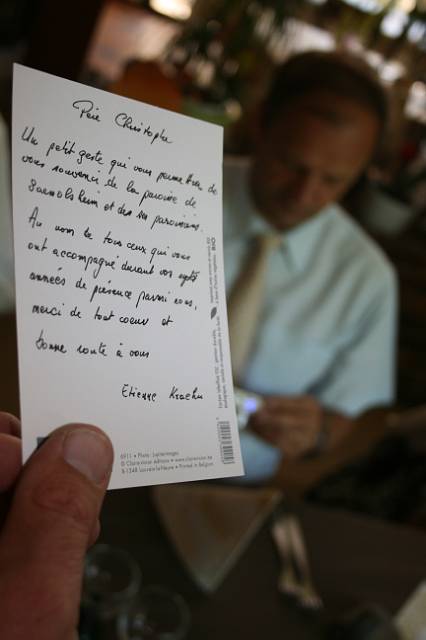 Père Christophe
Un petit geste qui vous permettra de
vous souvenir de la paroisse de
et des ses paroissiens.
Au nom de tous ceux qui vous
ont accompagné durant vos sept
années de présence parmi nous,
merci de tout coeur et
bonne route à vous
Etienne
6911 • Photo :
B-1348 Louvain-la-Neuve • Printed in Belgium